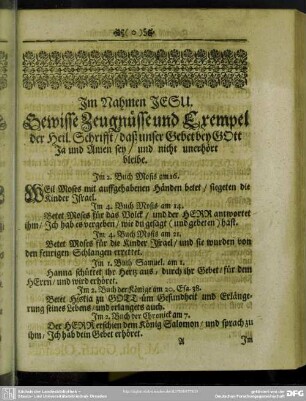 Im Nahmen JESU.
Gewisse Zeugnüsse und Exempel
der Heil. Schrifft / daß unser Gebet bey GOtt
Ja und Amen sey / und nicht unerhört
bleibe.
Im 2. Buch Moses am 16.
WEil Moses mit auffgehabenen Händen betet / siegeten die
Kinder Israel.
Im 4. Buch Moses am 14.
Betet Moses für das Volck / und der HERR antwortet
ihm / Ich hab es vergeben / wie du gesagt (und gebeten) hast.
Im 4. Buch Moses am 21.
Betet Moses für die Kinder Israel / und sie wurden von
den feurigen Schlangen errettet.
Im 1. Buch Samuel. am 1.
Hanna schüttet ihr Hertz aus / durch ihr Gebet / für dem
HErrn / und wird erhöret.
Im 2. Buch der Könige am 20. Esa. 38.
Betet Hiskia zu GOTT um Gesundheit und Erlänge-
rung seines Lebens / und erlangets auch.
Im 2. Buch der Chronick am 7.
Der HERR erschien dem König Salomon / und sprach zu
ihm / Ich hab dein Gebet erhöret.
A Im